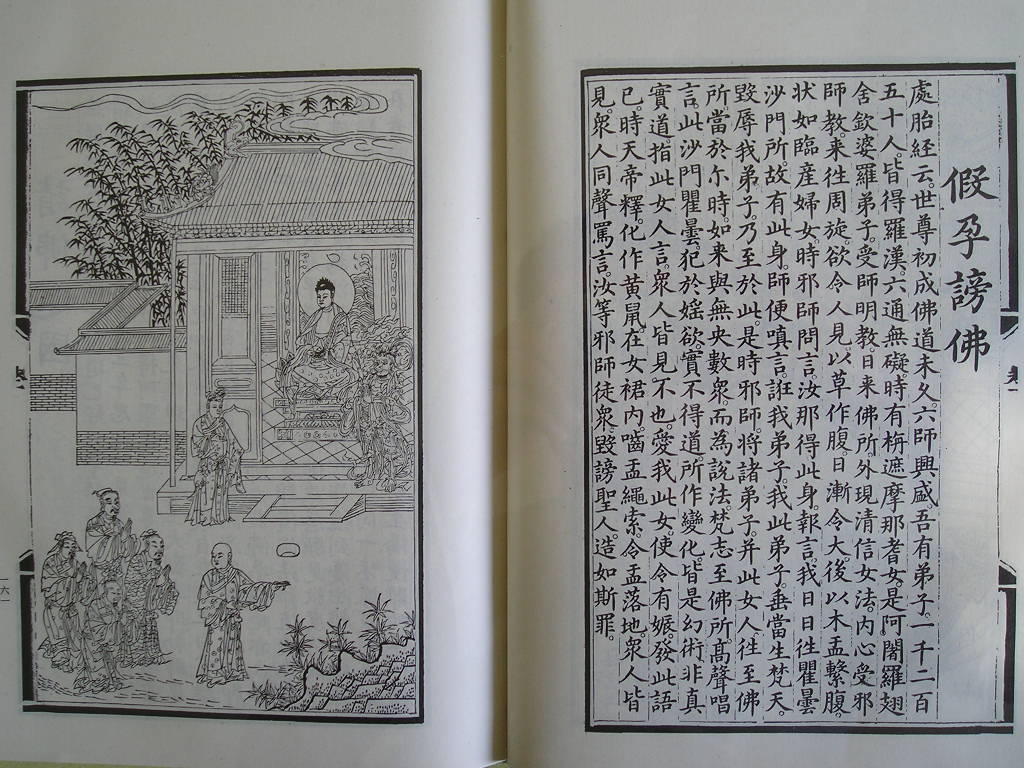 假孕謗佛
處胎經云。世尊初成佛道未久。六師興盛。吾有弟子。一千二百
五十人。皆得羅漢。六通無礙。時有栴遮摩那耆女。是阿闍羅翅
舍欽婆羅弟子。受師明教。日来佛所。外現清信女法。内心受邪
師教。来往周旋。欲令人見。以草作腹。日漸令大。後以木盂繫腹。
状如臨産婦女。時邪師問言。汝那得此身。報言。我日日往瞿曇
沙門所。故有此身。師便嗔言。誑我弟子。我此弟子。垂當生梵天。
毀辱我弟子。乃至於此。是時邪師。將諸弟子。并此女人往至佛
所。當於尒時。如来與無央數衆而為說法。梵志至佛所。髙聲唱
言。此沙門瞿曇犯於婬欲。實不得道。所作變化。皆是幻術。非真
實道。指此女人言。衆人皆見不也。愛我此女。使令有娠。發此語
已。時天帝釋。化作黄鼠。在女裙内。嚙盂繩索。令盂落地。衆人皆
見。衆人同聲罵言。汝等邪師徒衆。毀謗聖人。造如斯罪。
六一